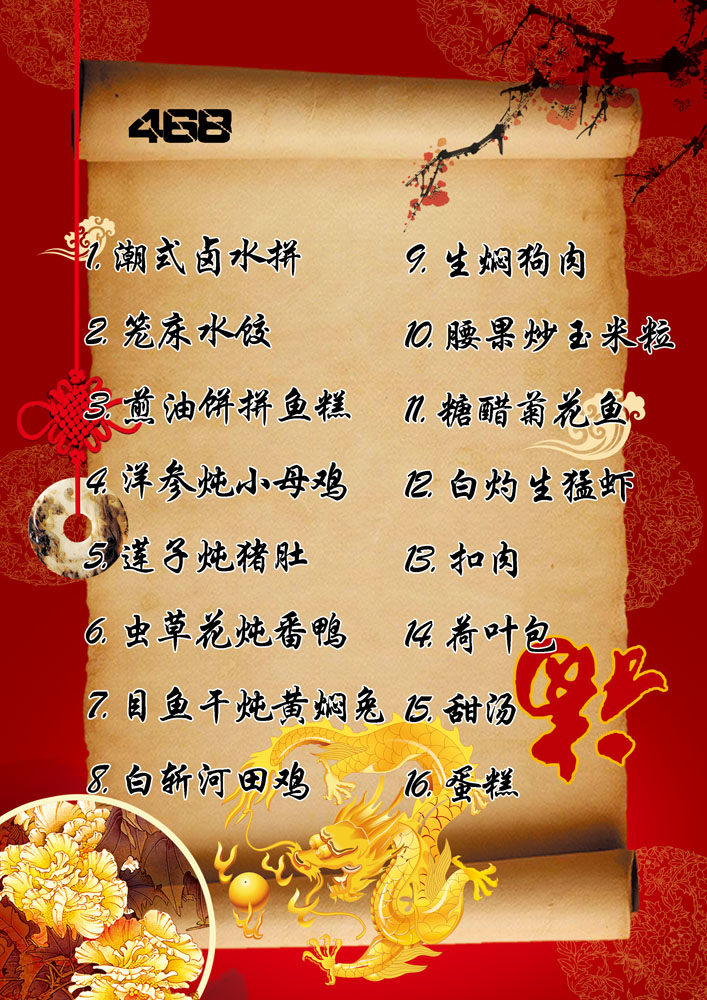 468
1. 潮式卤水拼
2. 笼床水饺
3. 煎油饼拼鱼糕
4. 洋参炖小母鸡
5. 莲子炖猪肚
6. 虫草花炖番鸭
7. 目鱼干炖黄焖兔
8. 白斩河田鸡
9. 生焖狗肉
10. 腰果炒玉米粒
11. 糖醋菊花鱼
12. 白灼生猛虾
13. 扣肉
14. 荷叶包
15. 甜汤
16. 蛋糕
福